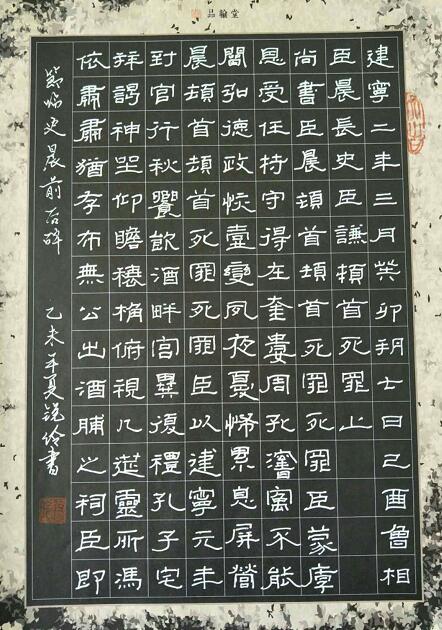 品翰堂
建寧二年三月癸卯朔七日己酉魯相
臣晨長史臣謙頓首死罪上
尚書臣晨頓首頓首死罪死罪臣蒙厚
恩受任符守得在奎婁周孔舊寓不能
闡弘德政恢壹變夙夜憂怖累息屏營
晨頓首頓首死罪死罪臣以建寧元年
到官行秋饗飲酒畔宮畢復禮孔子宅
拜謁神坐仰瞻榱桷俯視几筵靈所馮
依肅肅猶存而無公出酒脯之祠臣即
節臨史晨前后碑 乙未年夏銳伶書